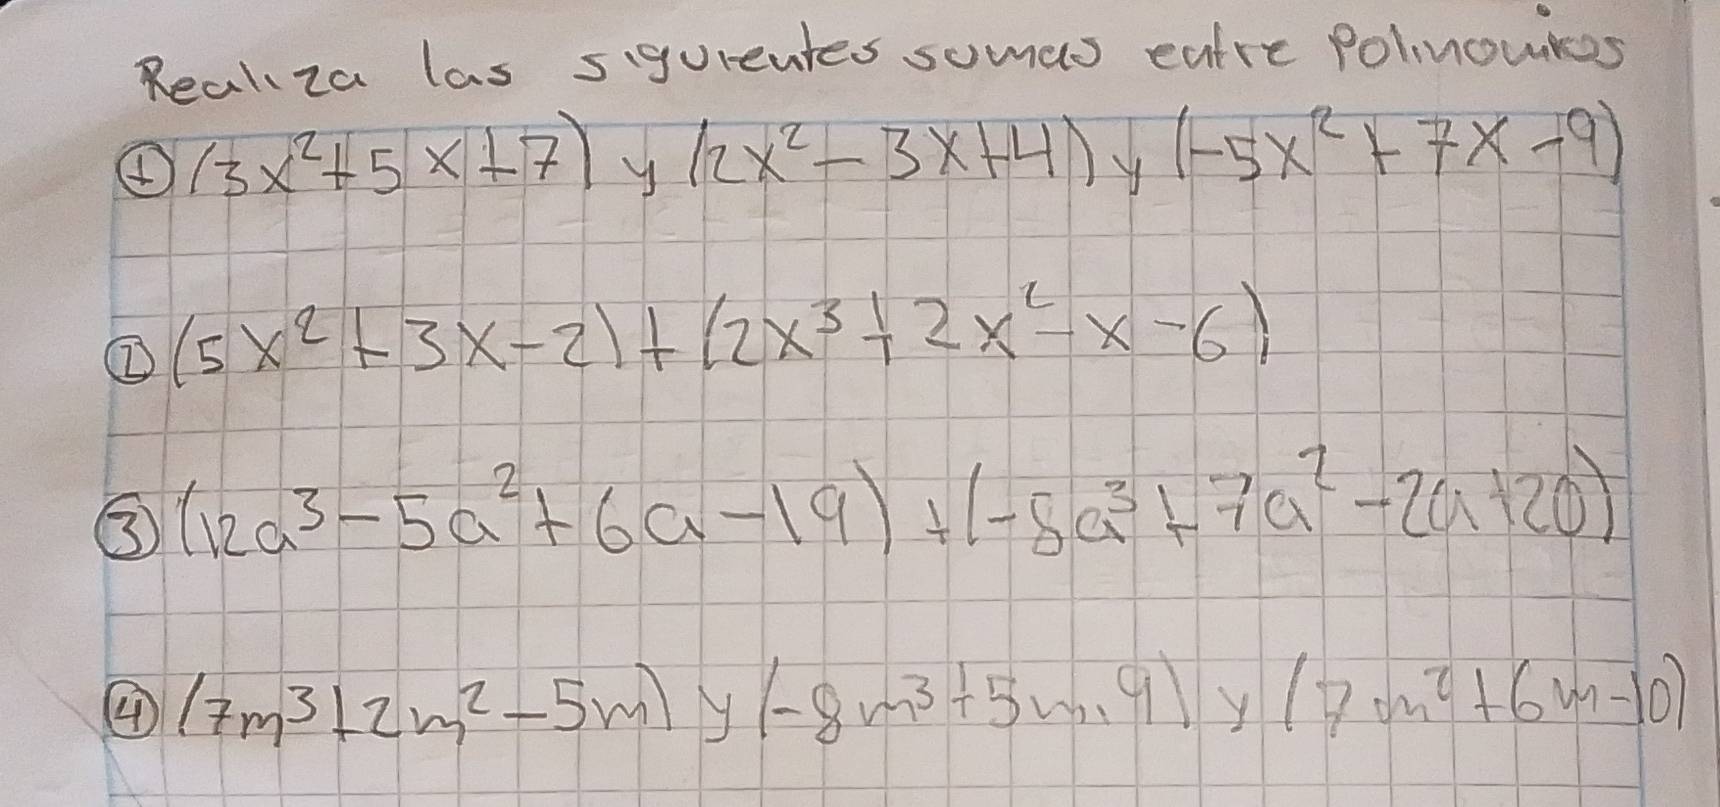 Realiza las siguientes sumas entre Polinomios
① (3x²+5x+7) y (2x²-3x+4) y (-5x²+7x-9)
② (5x²+3x-2)+(2x³+2x²-x-6)
③ (12a³-5a²+6a-19)+(-8a³+7a²-2a+20)
④ (7m³+2m²-5m) y (-8m³+5m.9) y (7m²+6m-10)